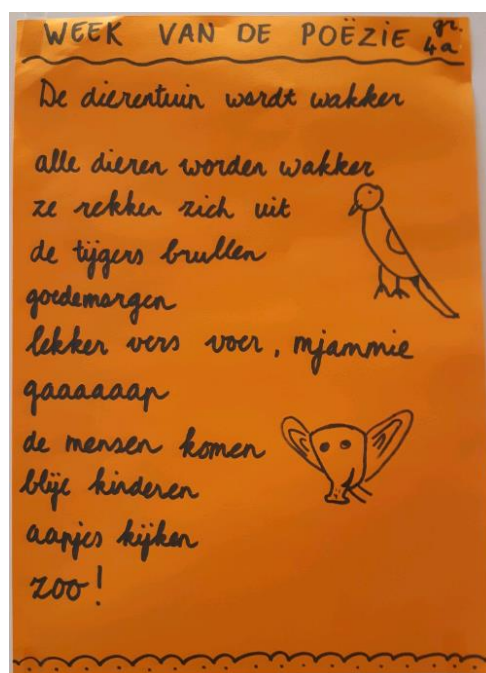 WEEK VAN DE POËZIE gr. 4a
De dierentuin wordt wakker
alle dieren worden wakker
ze rekken zich uit
de tijgers brullen
goedemorgen
lekker vers voer, mjammie
gaaaaaap
de mensen komen
blije kinderen
aapjes kijken
zoo!